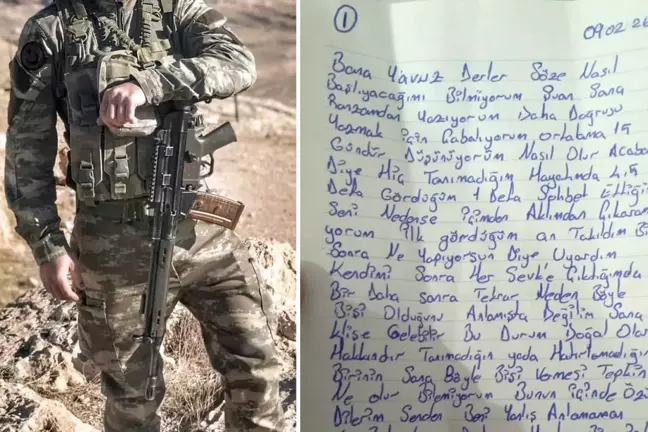 1
09.02.26
Bana Yavuz Derler Söze Nasıl
Başlıyacağımı Bilmiyorum Şuan Sana
Ranzamdan Yazıyorum Daha Doğrusu
Yazmak için Çabalıyorum ortalama 15
Gündür Düşünüyorum Nasıl Olur Acaba
Diye Hiç Tanımadığım Hayatımda 4,5
Defa Gördüğüm 1 Defa Sohbet Ettiğim
Seni Nedense içimden Aklımdan Çıkaram
yorum ilk gördüğüm an Takıldım
Sonra Ne Yapıyorsun Diye Uyardım
Kendimi Sonra Her Sevk'e Çıktığımda
Bir Daha Sonra Tekrar Neden Böyle
Bişi Olduğunu Anlamışta Değilim Sana
klişe Gelebilir Bu Durum Doğal Olar
Hakkındır Tanımadığın yada Hatırlamadığın
Birinin Sana Böyle Bişi Vermesi Tepkin
Ne olur Bilemiyorum Bunun içinde Öz
Dilerim Senden Beni Yanlış Anlamaman